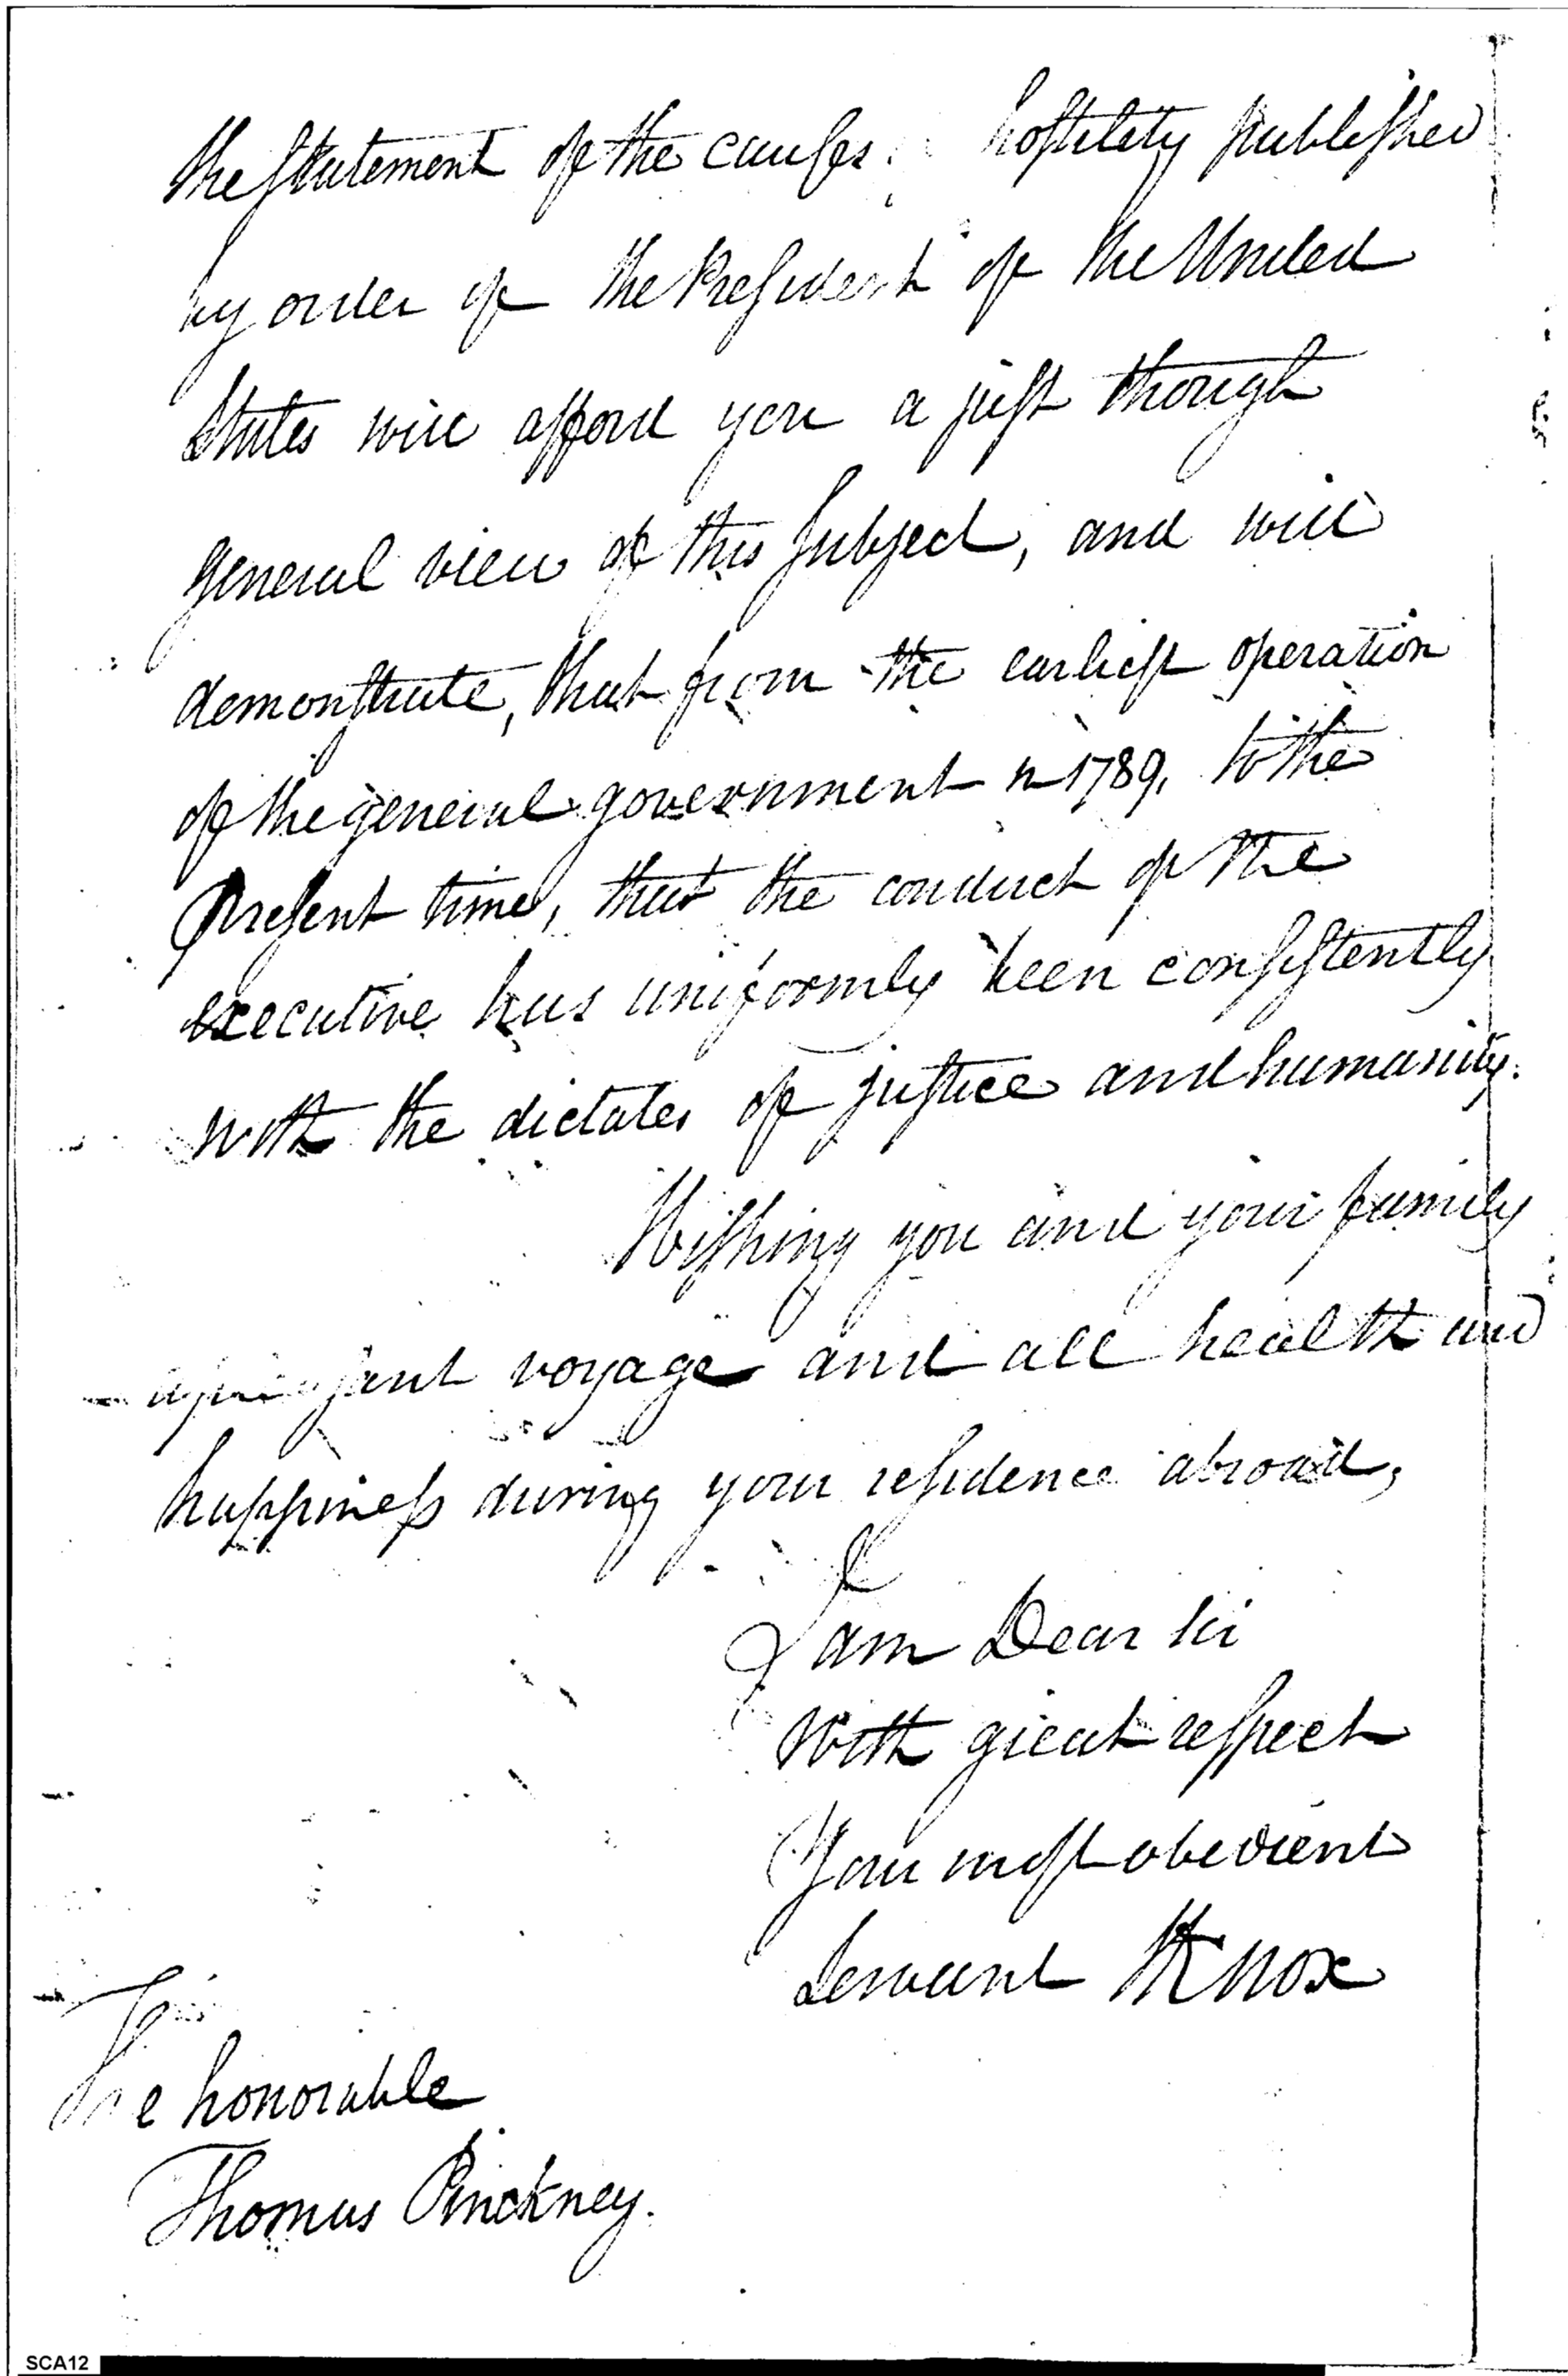 the statement of the causes hostility published
by order of the President of the United
States will afford you a just though
general view of this subject, and will
demonstrate, that from the earliest operation
of the general government in 1789, to the
present time, that the conduct of the
executive has uniformly been consistently
with the dictates of justice and humanity.
Wishing you and your family
a pleasant voyage and all health and
happiness during your residence abroad,
I am Dear sir
With great respect
Your most obedient
Servant HKnox
The honorable
Thomas Pinckney.
SCA12